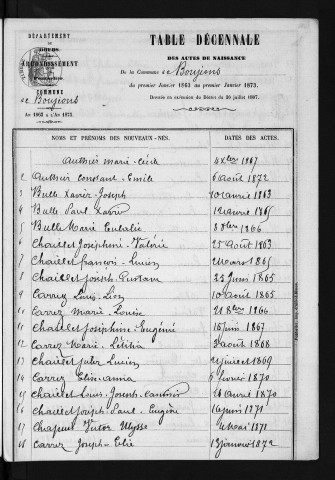 DÉPARTEMENT
DU DOUBS
ARRONDISSEMENT
COMMUNE
de Boujeons
AN 1863 à L'AN 1873.
TABLE DÉCENNALE
DES ACTES DE NAISSANCE
De la Commune d e Boujeons
du premier Janvier 1863 au premier Janvier 1873.
Dressée en exécution du Décret du 20 juillet 1807.
NOMS ET PRÉNOMS DES NOUVEAUX-NÉS. DATES DES ACTES.
Authier Marie 4 Xbre 1867
2 Authier Constant Emile 6 août 1872
3 Bulle Xavier Joseph 10 avril 1863
4 Bulle Paul Xavier 12 avril 1865
5 Bulle Marie Eulalie 3 8bre 1866
6 Chaillet Joséphine Valérie 25 août 1863
7 Chaillet françois Lucien 1865
8 Chaillet Joseph Gustave 22 Juin 1865
9 Carrez Louis Léon 10 août 1865
10 Carrez Marie Louise 21 8bre 1866
11 Chaillet Joséphine Eugénie 16 Juin 1867
12 Carrez Marie Létitia 3 août 1868
13 Chaillet Jules Lucien 2 juillet 1869
14 Carrez Elisanna 6 février 1870
15 Chaillet Louis Joseph Casimir 26 avril 1870
16 Chaillet Joseph Paul Eugène 16 juin 1871
17 Victor Ulysse 4 août 1871
18 Carrez Joseph Elie 13 janvier 1872